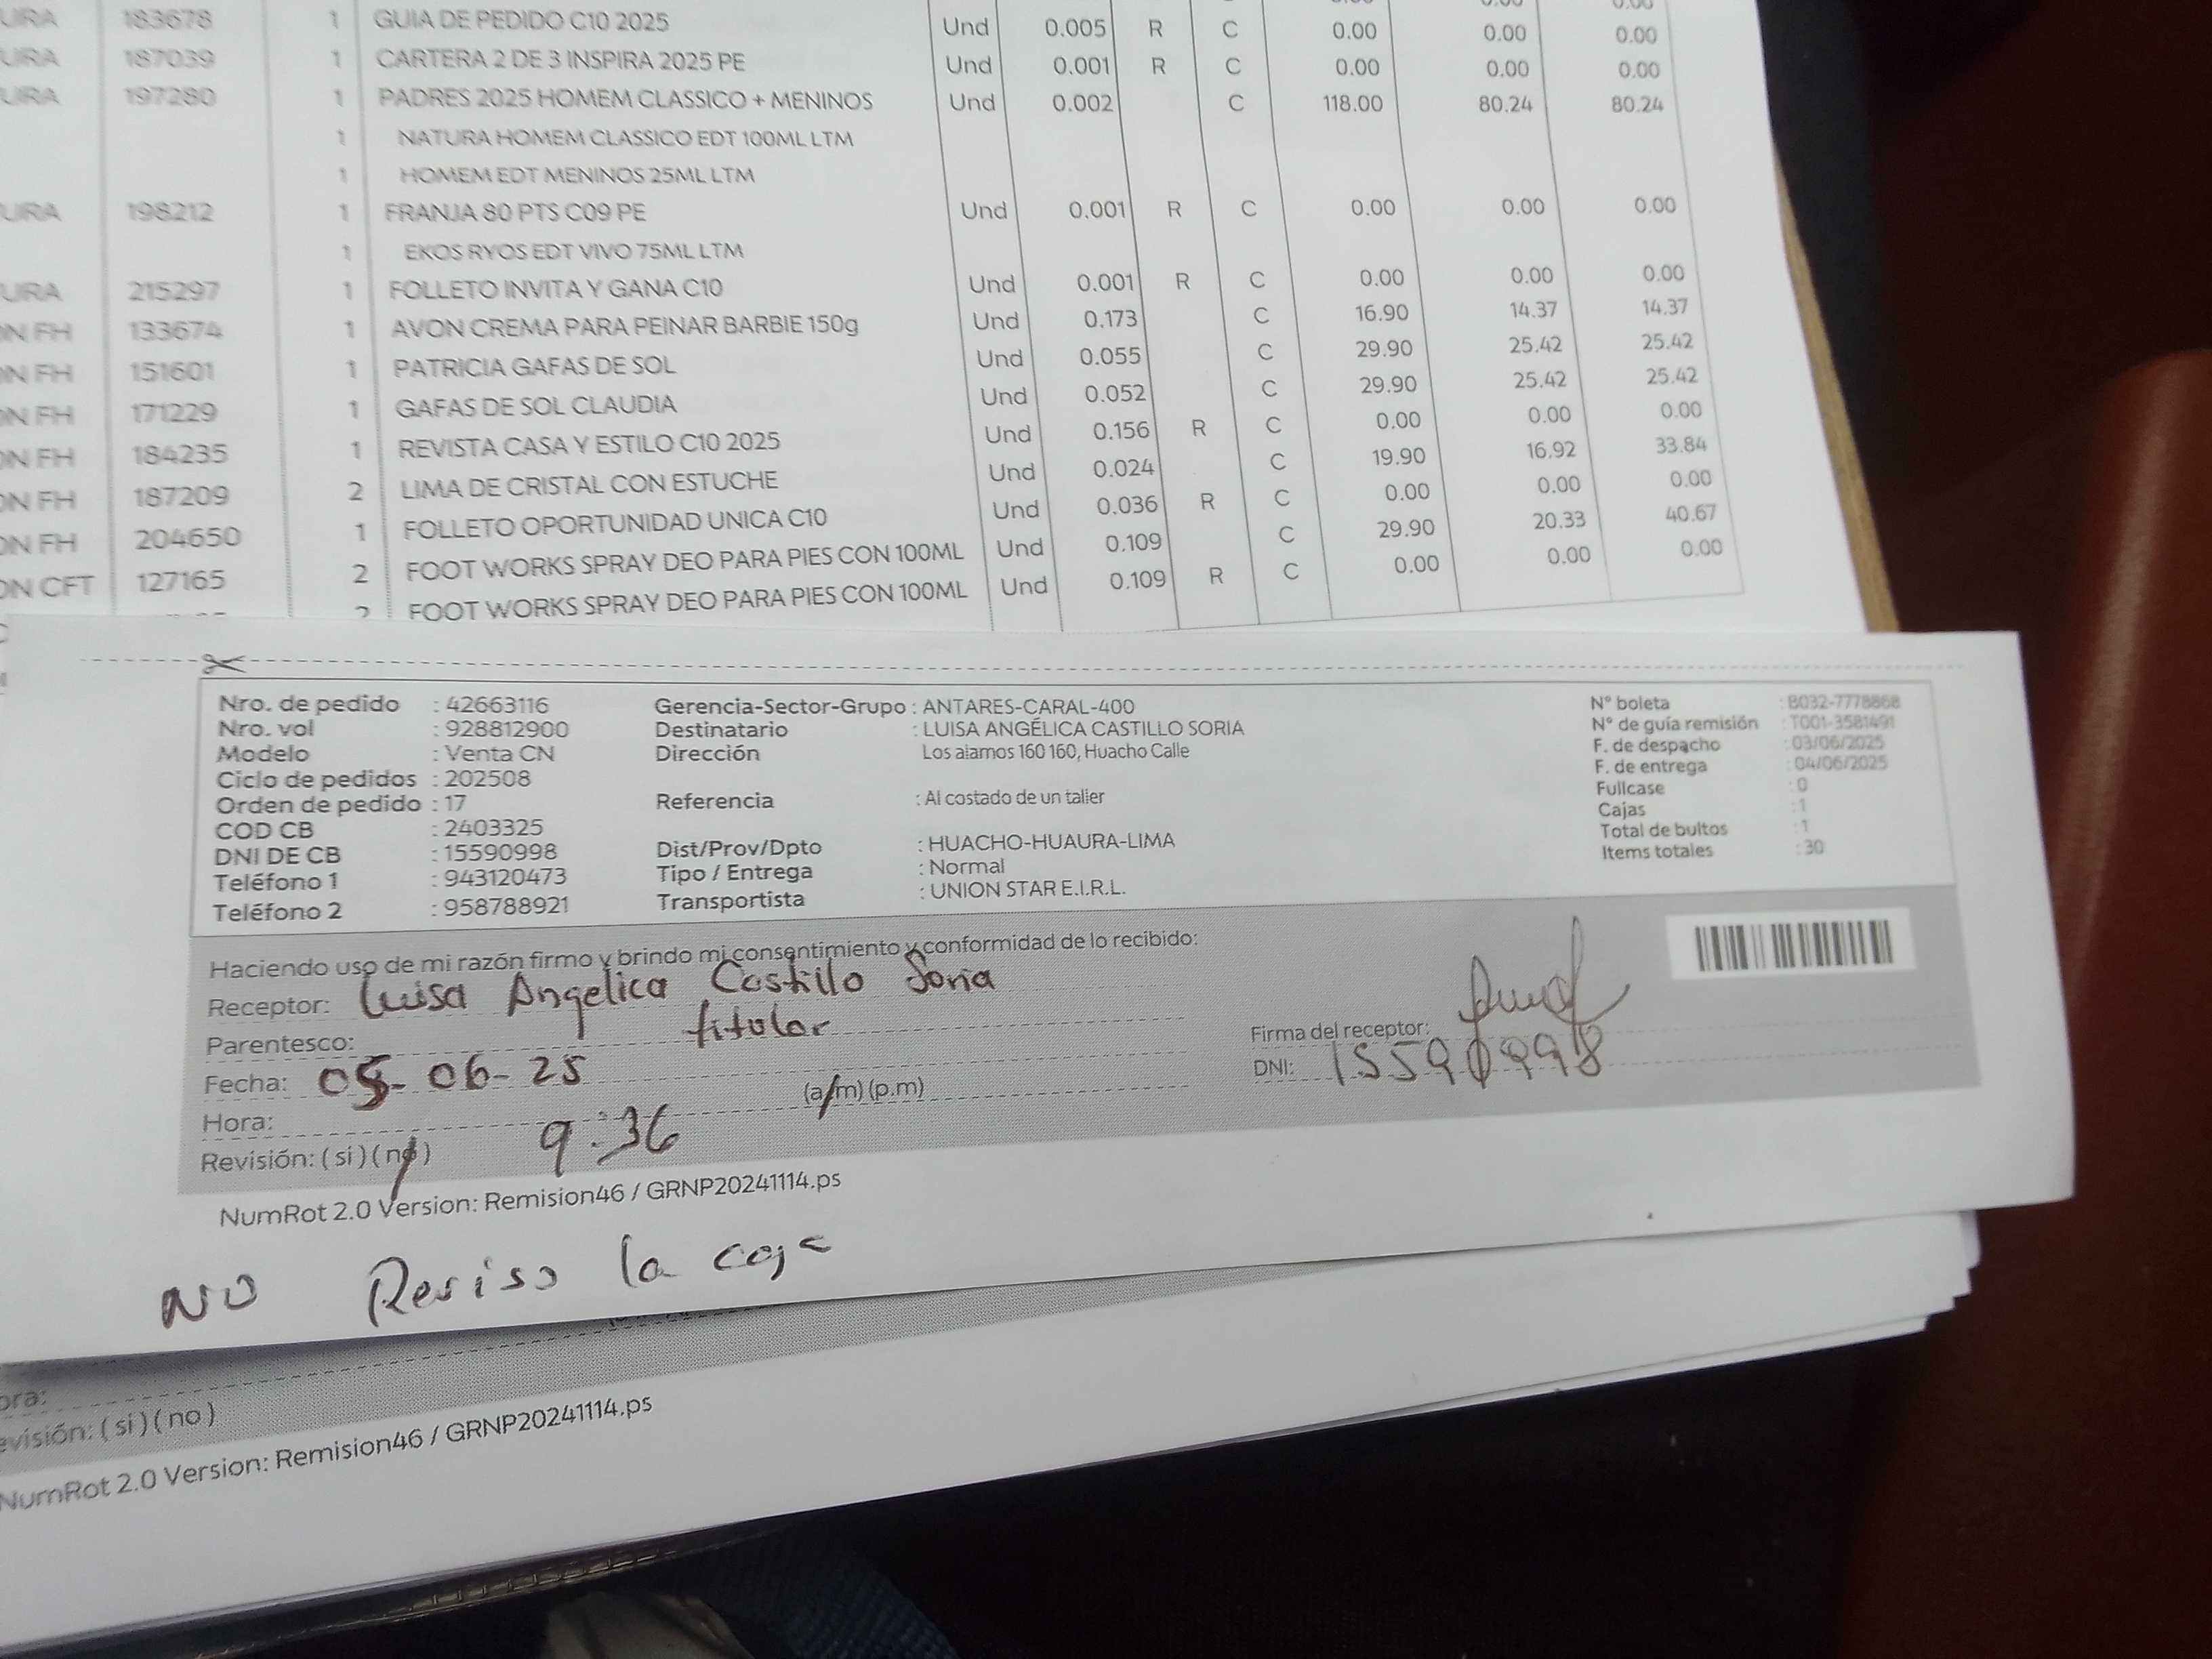 URA 183678 1 GUIA DE PEDIDO C10 2025 Und 0.005 R C 0.00 0.00 0.00
URA 187039 1 CARTERA 2 DE 3 INSPIRA 2025 PE Und 0.001 R C 0.00 0.00 0.00
URA 197280 1 PADRES 2025 HOMEM CLASSICO + MENINOS Und 0.002 C 118.00 80.24 80.24
1 NATURA HOMEM CLASSICO EDT 100ML LTM
1 HOMEM EDT MENINOS 25ML LTM
URA 198212 1 FRANJA 80 PTS C09 PE Und 0.001 R C 0.00 0.00 0.00
1 EKOS RYOS EDT VIVO 75ML LTM
URA 215297 1 FOLLETO INVITA Y GANA C10 Und 0.001 R C 0.00 0.00 0.00
ON FH 133674 1 AVON CREMA PARA PEINAR BARBIE 150g Und 0.173 C 16.90 14.37 14.37
ON FH 151601 1 PATRICIA GAFAS DE SOL Und 0.055 C 29.90 25.42 25.42
ON FH 171229 1 GAFAS DE SOL CLAUDIA Und 0.052 C 29.90 25.42 25.42
ON FH 184235 1 REVISTA CASA Y ESTILO C10 2025 Und 0.156 R C 0.00 0.00 0.00
ON FH 187209 2 LIMA DE CRISTAL CON ESTUCHE Und 0.024 C 19.90 16.92 33.84
ON FH 204650 1 FOLLETO OPORTUNIDAD UNICA C10 Und 0.036 R C 0.00 0.00 0.00
ON CFT 127165 2 FOOT WORKS SPRAY DEO PARA PIES CON 100ML Und 0.109 C 29.90 20.33 40.67
2 FOOT WORKS SPRAY DEO PARA PIES CON 100ML Und 0.109 R C 0.00 0.00 0.00
Nro. de pedido : 42663116 Gerencia-Sector-Grupo : ANTARES-CARAL-400 N° boleta : B032-7778868
Nro. vol : 928812900 Destinatario : LUISA ANGÉLICA CASTILLO SORIA N° de guía remisión : T001-3581491
Modelo : Venta CN Dirección Los alamos 160 160, Huacho Calle F. de despacho : 03/06/2025
Ciclo de pedidos : 202508 F. de entrega : 04/06/2025
Orden de pedido : 17 Referencia : Al costado de un taller Fullcase : 0
COD CB : 2403325 Cajas : 1
DNI DE CB : 15590998 Dist/Prov/Dpto : HUACHO-HUAURA-LIMA Total de bultos : 1
Teléfono 1 : 943120473 Tipo / Entrega : Normal Items totales : 30
Teléfono 2 : 958788921 Transportista : UNION STAR E.I.R.L.
Haciendo uso de mi razón firmo y brindo mi consentimiento y conformidad de lo recibido:
Receptor: Luisa Angelica Castillo Soria
Parentesco: titular Firma del receptor:
Fecha: 05-06-25 DNI: 15590998
Hora: 9:36 (a/m) (p.m)
Revisión: ( si ) ( no )
NumRot 2.0 Version: Remision46 / GRNP20241114.ps
NO Reviso la caja
ora:
evisión: ( si ) ( no )
NumRot 2.0 Version: Remision46 / GRNP20241114.ps